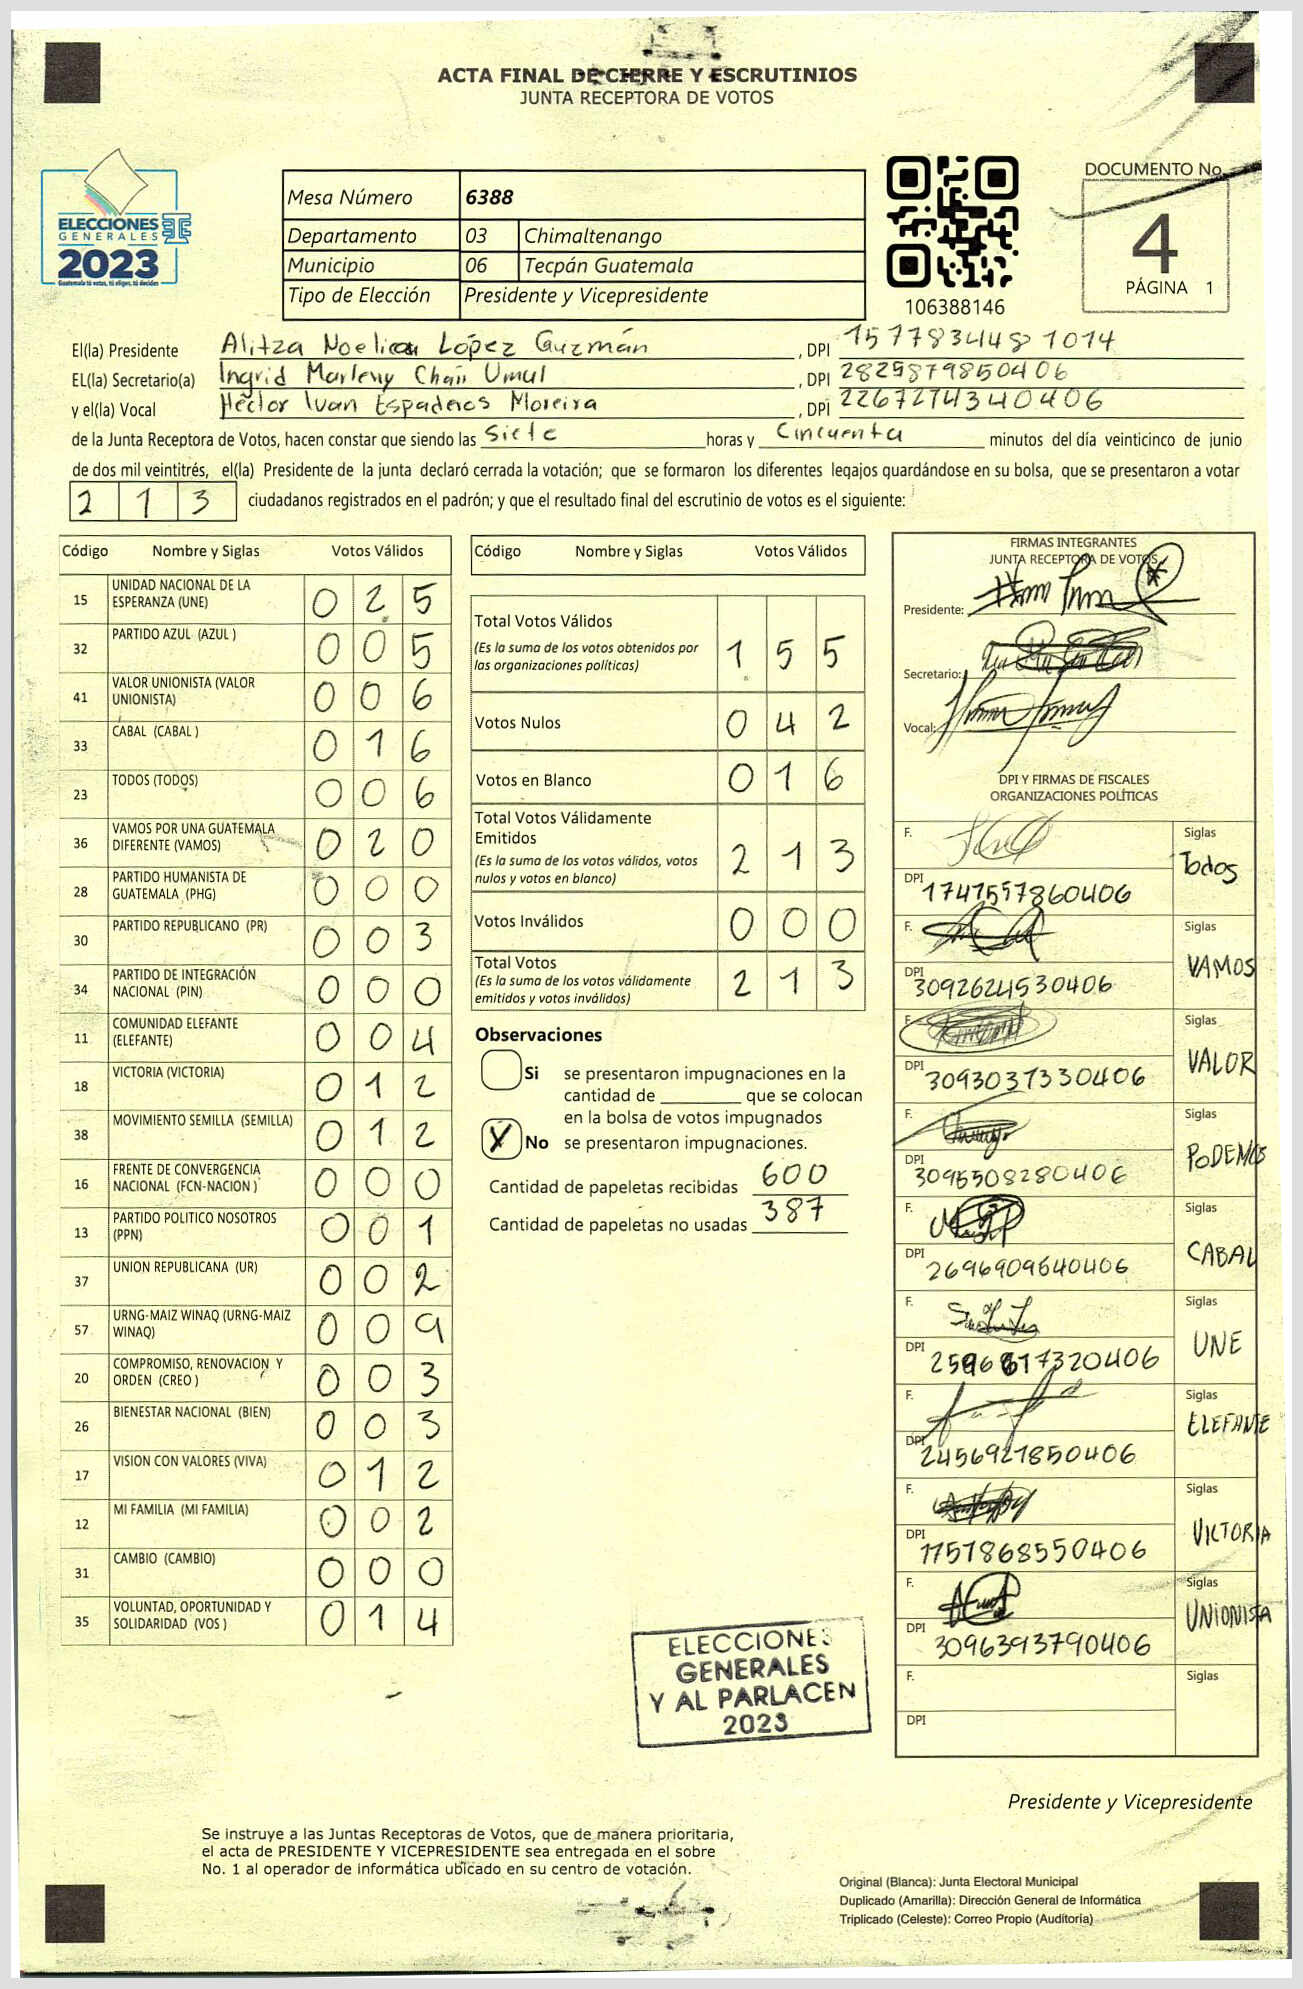 ACTA FINAL DE CIERRE Y ESCRUTINIOS
JUNTA RECEPTORA DE VOTOS
ELECCIONES
GENERALES
2023
Guatemala tú votas, tú eliges, tú decides
Mesa Número 6388
Departamento 03 Chimaltenango
Municipio 06 Tecpán Guatemala
Tipo de Elección Presidente y Vicepresidente
106388146
DOCUMENTO No.
4
PÁGINA 1
El(la) Presidente Alitza Noelia López Guzmán, DPI 157783448 1014
EL(la) Secretario(a) Ingrid Marleny Chan Umul, DPI 2829879850406
y el(la) Vocal Héctor Ivan Espaderos Moreira, DPI 2267274340406
de la Junta Receptora de Votos, hacen constar que siendo las Siete horas y Cincuenta minutos del día veinticinco de junio
de dos mil veintitrés, el(la) Presidente de la junta declaró cerrada la votación; que se formaron los diferentes legajos guardándose en su bolsa, que se presentaron a votar
2 1 3 ciudadanos registrados en el padrón; y que el resultado final del escrutinio de votos es el siguiente:
Código Nombre y Siglas Votos Válidos
15 UNIDAD NACIONAL DE LA ESPERANZA (UNE) 0 2 5
32 PARTIDO AZUL (AZUL ) 0 0 5
41 VALOR UNIONISTA (VALOR UNIONISTA) 0 0 6
33 CABAL (CABAL ) 0 1 6
23 TODOS (TODOS) 0 0 6
36 VAMOS POR UNA GUATEMALA DIFERENTE (VAMOS) 0 2 0
28 PARTIDO HUMANISTA DE GUATEMALA (PHG) 0 0 0
30 PARTIDO REPUBLICANO (PR) 0 0 3
34 PARTIDO DE INTEGRACIÓN NACIONAL (PIN) 0 0 0
11 COMUNIDAD ELEFANTE (ELEFANTE) 0 0 4
18 VICTORIA (VICTORIA) 0 1 2
38 MOVIMIENTO SEMILLA (SEMILLA) 0 1 2
16 FRENTE DE CONVERGENCIA NACIONAL (FCN-NACION ) 0 0 0
13 PARTIDO POLITICO NOSOTROS (PPN) 0 0 1
37 UNION REPUBLICANA (UR) 0 0 2
57 URNG-MAIZ WINAQ (URNG-MAIZ WINAQ) 0 0 9
20 COMPROMISO, RENOVACION Y ORDEN (CREO ) 0 0 3
26 BIENESTAR NACIONAL (BIEN) 0 0 3
17 VISION CON VALORES (VIVA) 0 1 2
12 MI FAMILIA (MI FAMILIA) 0 0 2
31 CAMBIO (CAMBIO) 0 0 0
35 VOLUNTAD, OPORTUNIDAD Y SOLIDARIDAD (VOS ) 0 1 4
Código Nombre y Siglas Votos Válidos
Total Votos Válidos 1 5 5
(Es la suma de los votos obtenidos por
las organizaciones políticas)
Votos Nulos 0 4 2
Votos en Blanco 0 1 6
Total Votos Válidamente
Emitidos 2 1 3
(Es la suma de los votos válidos, votos
nulos y votos en blanco)
Votos Inválidos 0 0 0
Total Votos 2 1 3
(Es la suma de los votos válidamente
emitidos y votos inválidos)
Observaciones
Si se presentaron impugnaciones en la
cantidad de ________ que se colocan
en la bolsa de votos impugnados
X No se presentaron impugnaciones.
Cantidad de papeletas recibidas 600
Cantidad de papeletas no usadas 387
FIRMAS INTEGRANTES
JUNTA RECEPTORA DE VOTOS
Presidente:
Secretario:
Vocal:
DPI Y FIRMAS DE FISCALES
ORGANIZACIONES POLÍTICAS
F. Siglas Todos
DPI 1747557860406
F. Siglas VAMOS
DPI 3092624530406
F. Siglas VALOR
DPI 3093037330406
F. Siglas PODEMOS
DPI 3095508280406
F. Siglas CABAL
DPI 2696909640406
F. Siglas UNE
DPI 2596617320406
F. Siglas ELEFANTE
DPI 2456921850406
F. Siglas VICTORIA
DPI 1757868550406
F. Siglas UNIONISTA
DPI 3096393790406
F. Siglas
DPI
ELECCIONES
GENERALES
Y AL PARLACEN
2023
Presidente y Vicepresidente
Se instruye a las Juntas Receptoras de Votos, que de manera prioritaria,
el acta de PRESIDENTE Y VICEPRESIDENTE sea entregada en el sobre
No. 1 al operador de informática ubicado en su centro de votación.
Original (Blanca): Junta Electoral Municipal
Duplicado (Amarilla): Dirección General de Informática
Triplicado (Celeste): Correo Propio (Auditoría)